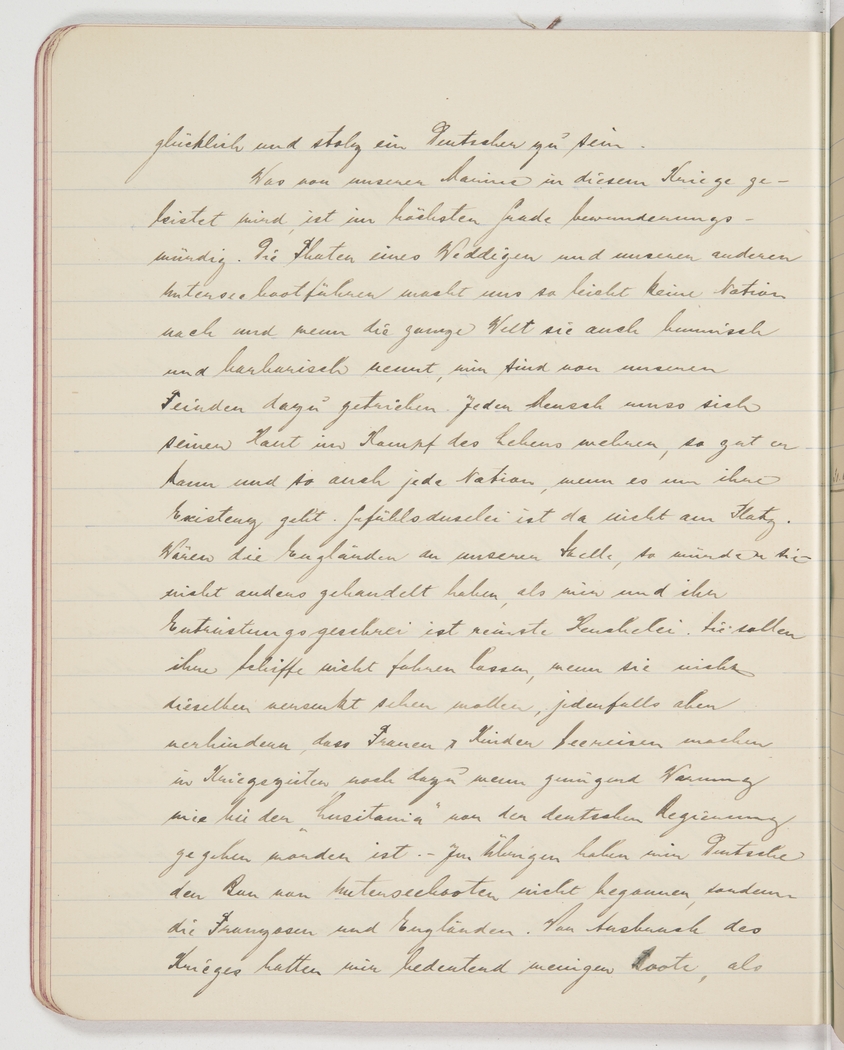 glücklich und stolz ein Deutscher zu sein.
Was von unserer Marine in diesem Kriege ge-
leistet wird, ist im höchsten Grade bewunderungs-
würdig. Die Thaten eines Weddigen und unserer anderen
Unterseebootführer macht uns so leicht keine Nation
nach und wenn die ganze Welt sie auch hunnisch
und barbarisch nennt, wir sind von unseren
Feinden dazu getrieben. Jeder Mensch muss sich
seiner Haut im Kampf des Lebens wehren, so gut er
kann und so auch jede Nation, wenn es um ihre
Existenz geht. Gefühlsduselei ist da nicht am Platz.
Wären die Engländer an unserer Stelle, so würden sie
nicht anders gehandelt haben, als wir und ihr
Entrüstungsgeschrei ist reinste Heuchelei. Sie sollen
ihre Schiffe nicht fahren lassen, wenn sie nicht
dieselben versenkt sehen wollen, jedenfalls aber
verhindern, dass Frauen & Kinder Seereisen machen
in Kriegszeiten, noch dazu wenn genügend Warnung
wie bei der "Lusitania" von der deutschen Regierung
gegeben worden ist. - Im Übrigen haben wir Deutsche
den Bau von Unterseebooten nicht begonnen, sondern
die Franzosen und Engländer. Vor Ausbruch des
Krieges hatten wir bedeutend weniger Boote, als